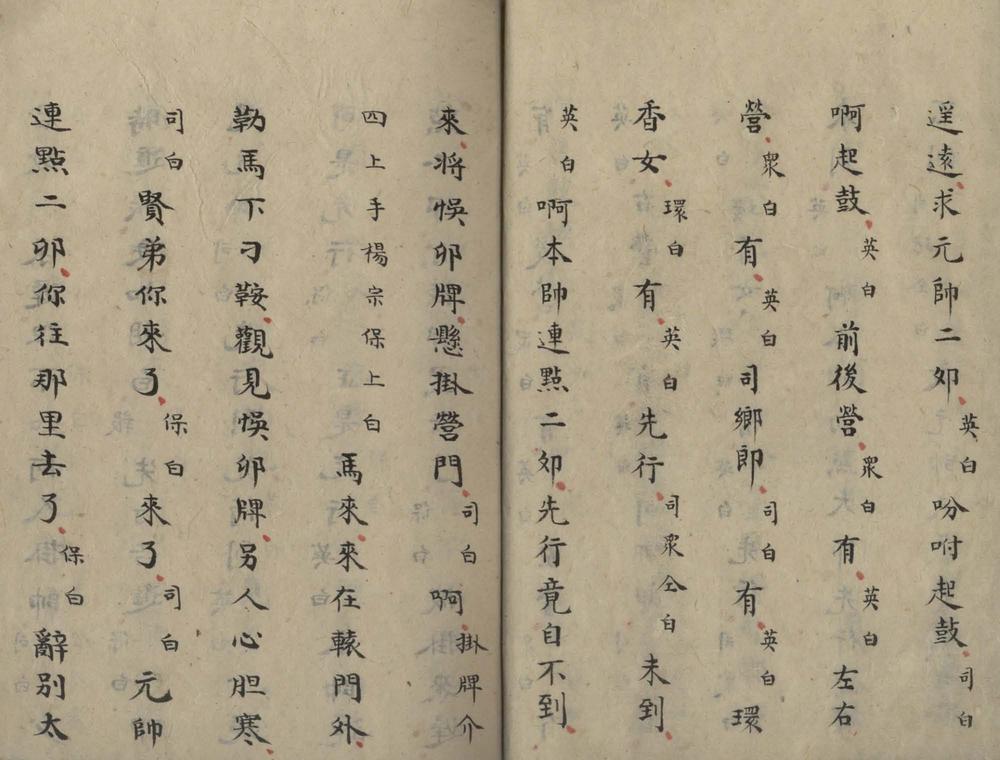 遥遠求元帥二夘英白吩咐起鼓司白
啊起鼓英白前後營衆白有英白左右
營衆白有英白司鄉郎司白有英白環
香女環白有英白先行司衆仝白未到
英白啊本帥連點二夘先行竟自不到
來將悞卯牌懸掛營門司白啊掛牌介
四上手楊宗保上白馬來來在轅門外
勒馬下刁鞍觀見悞卯牌另人心胆寒
司白賢弟你來了保白來了司白元帥
連點二卯你往那里去了保白辭别太